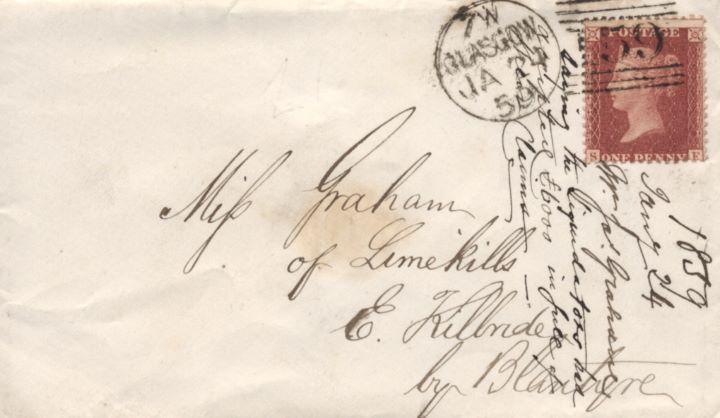 7W
GLASGOW
JA 24
59
159
POSTAGE
S ONE PENNY E
Miss Graham
of Limekills
E. Kilbride
by Blantyre
1859
Jany 24
Graham
saying the Liquidators had
£6000 in full of